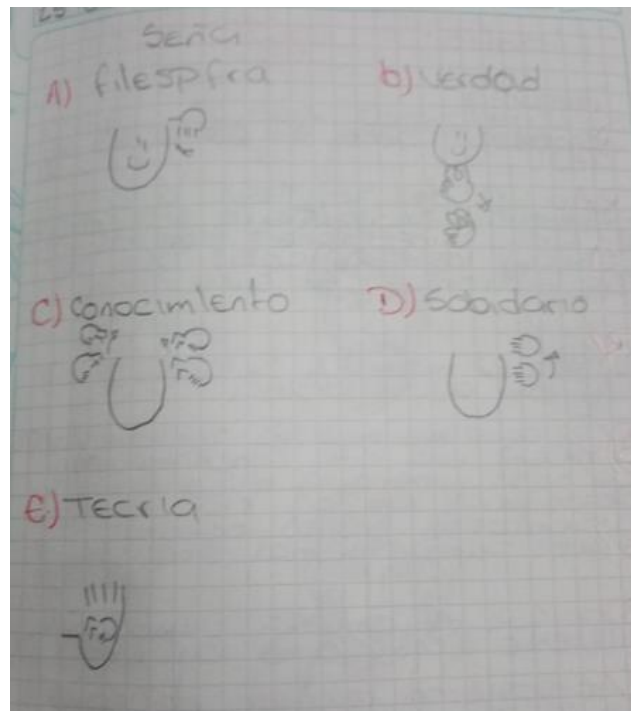 Seña
A) filespfra
b) verdad
C) conocimiento
D) Sabidario
E) TECRIA